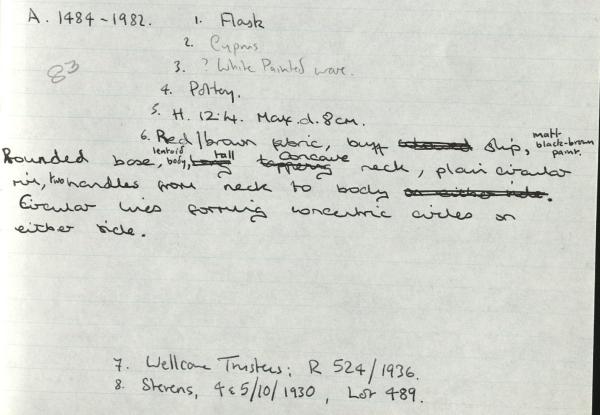 A. 1484-1982. 1. Flask
83 2. Cyprus
3. ? White Painted ware.
4. Pottery.
5. H. 12.4. Max. d. 8cm.
6. Red/brown fabric, buff slip, matt black-brown paint.
Rounded base, lentoid body, tall concave neck, plain circular
rim, two handles from neck to body.
Circular lines forming concentric circles on
either side.
7. Wellcome Trustees; R 524/1936.
8. Stevens, 4 & 5/10/1930, Lot 489.